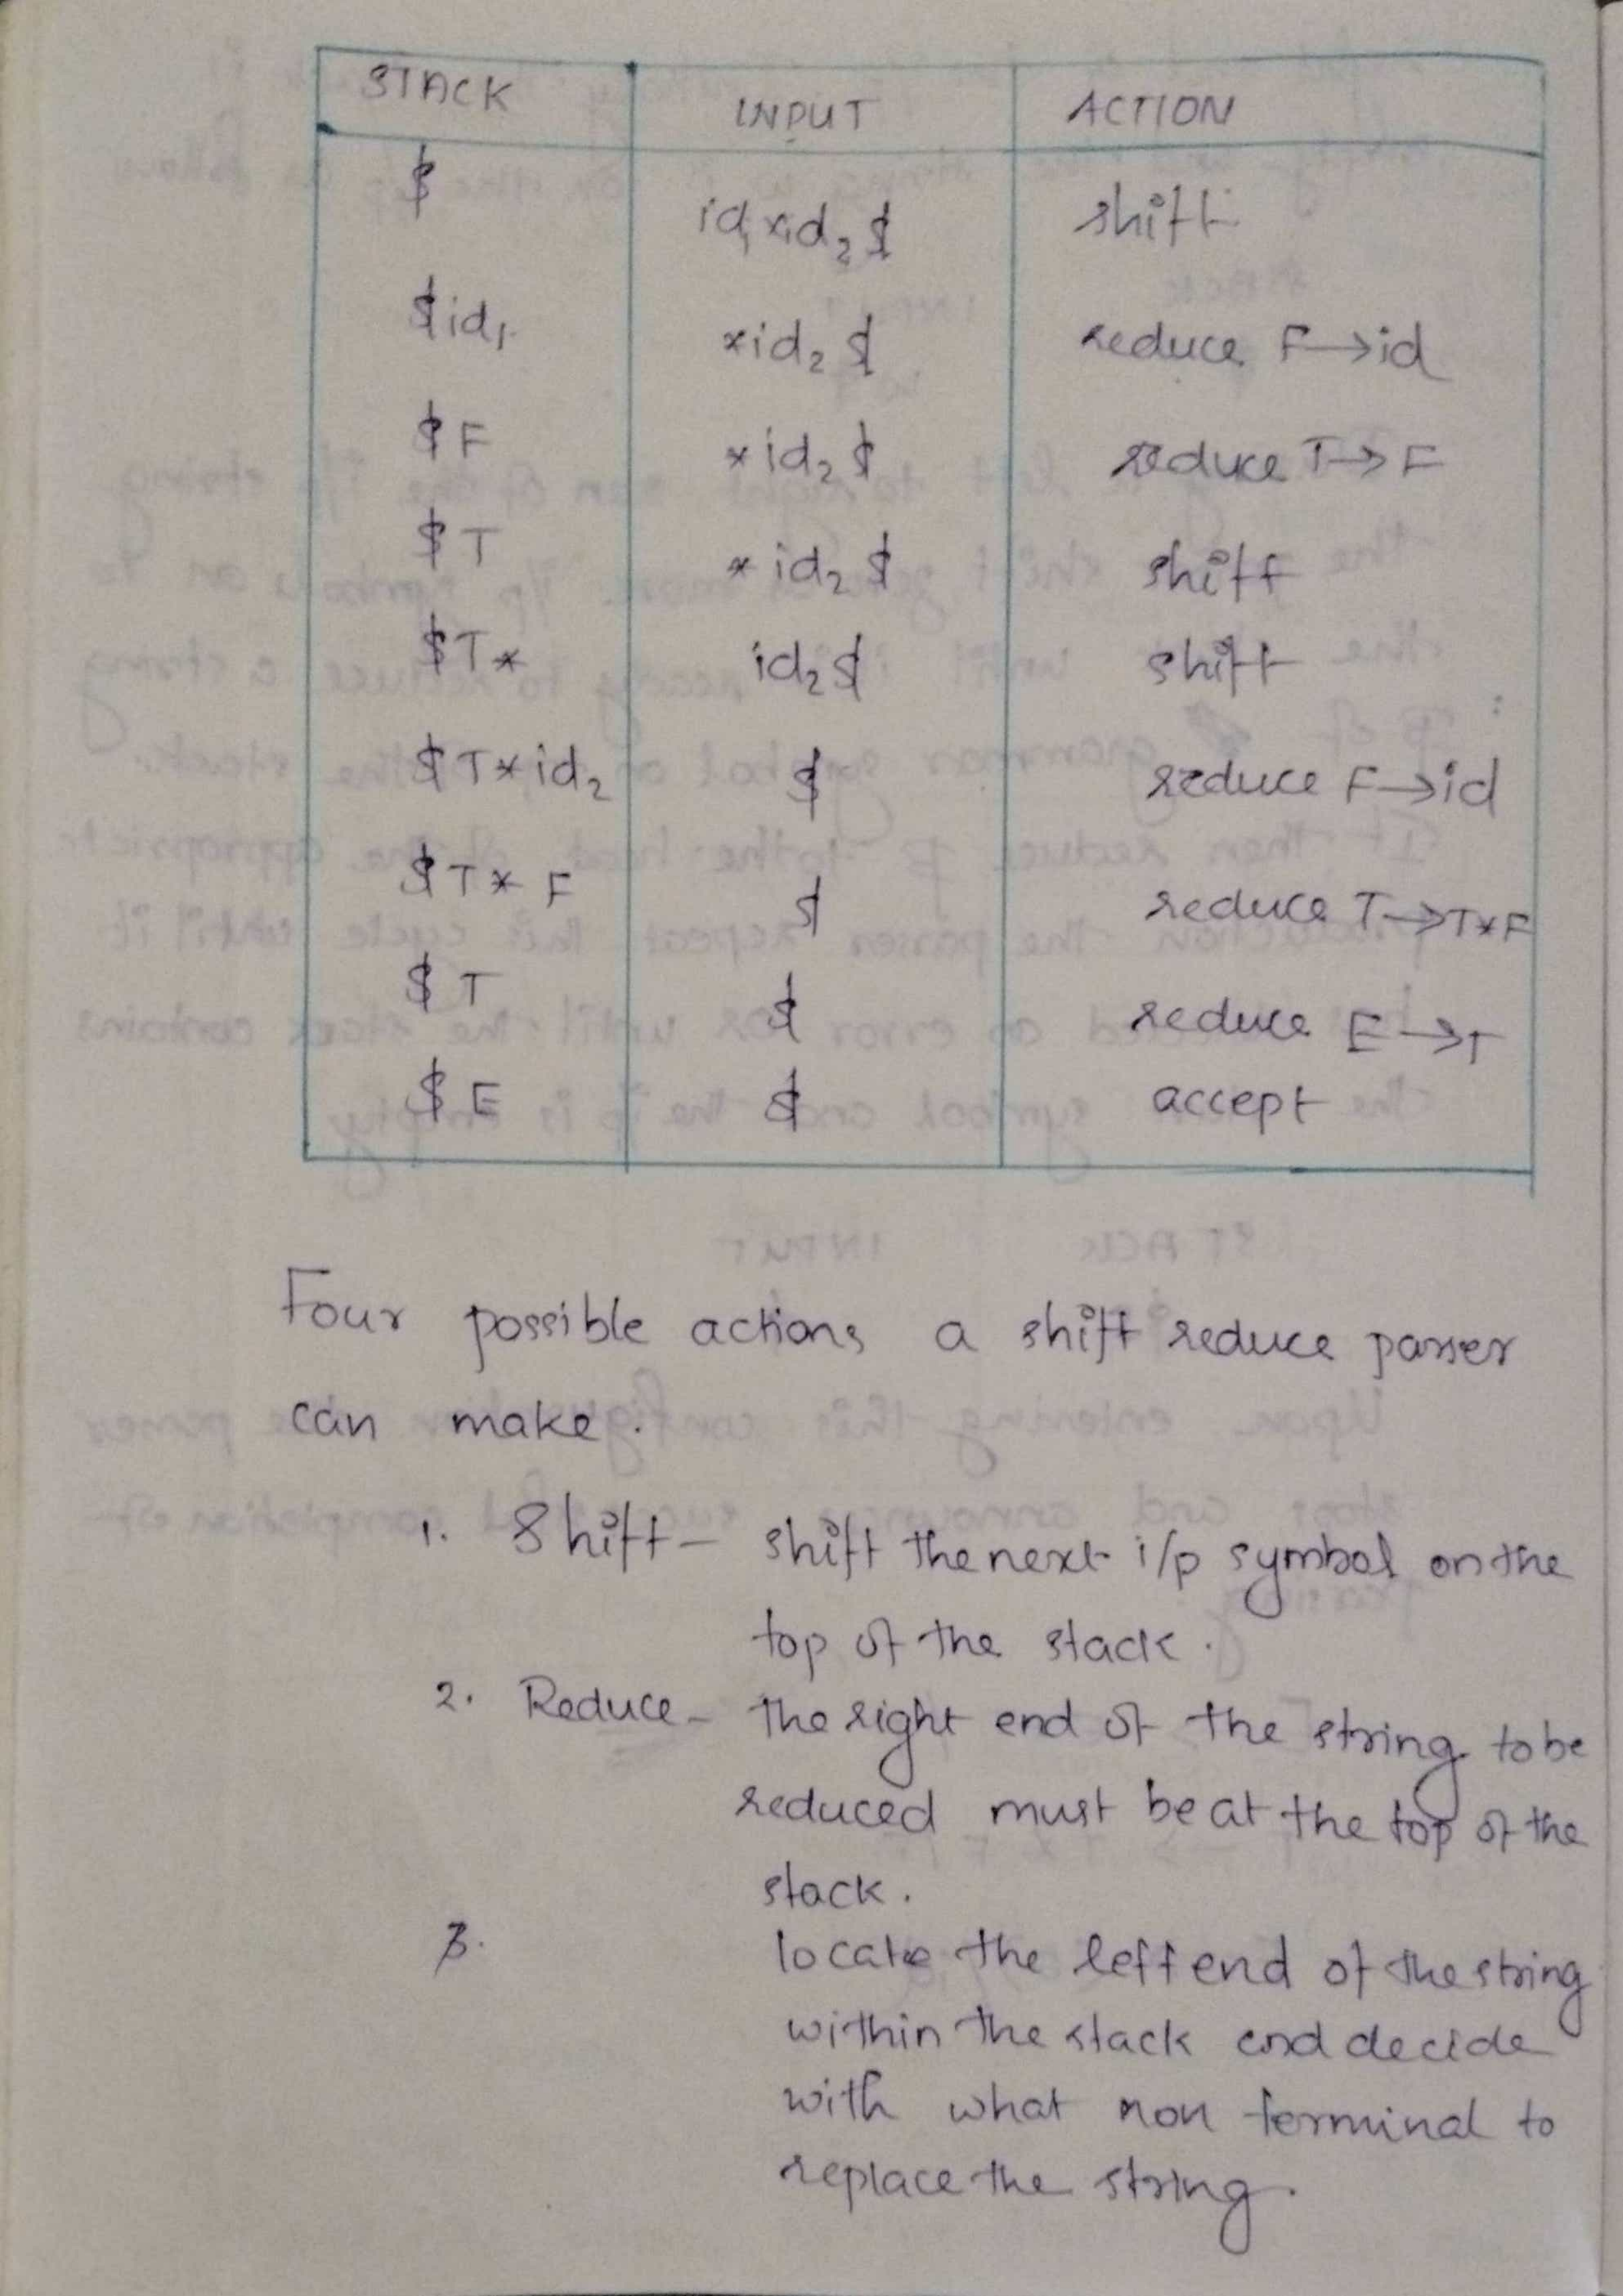 STACK INPUT ACTION
$ id₁*id₂$ shift
$id₁ *id₂$ reduce F→id
$F *id₂$ reduce T→F
$T *id₂$ shift
$T* id₂$ shift
$T*id₂ $ reduce F→id
$T*F $ reduce T→T*F
$T $ reduce E→T
$E $ accept
Four possible actions a shift reduce parser
can make.
1. Shift – shift the next i/p symbol on the
top of the stack.
2. Reduce – the right end of the string to be
reduced must be at the top of the
stack.
3. locate the left end of the string
within the stack and decide
with what non terminal to
replace the string.